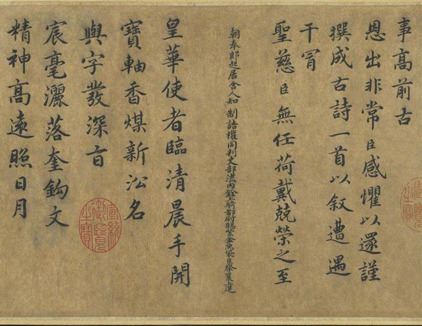 事高前古
恩出非常臣感懼以還謹
撰成古詩一首以敘遭遇
干冒
聖慈臣無任荷戴兢榮之至
朝奉郎起居舍人知制誥權同判吏部流內銓都尉賜紫金魚袋臣蔡襄上進
皇華使者臨清晨手開
寶軸香煤新㳂名
與字發深旨
宸毫灑落奎鉤文
精神高遠照日月